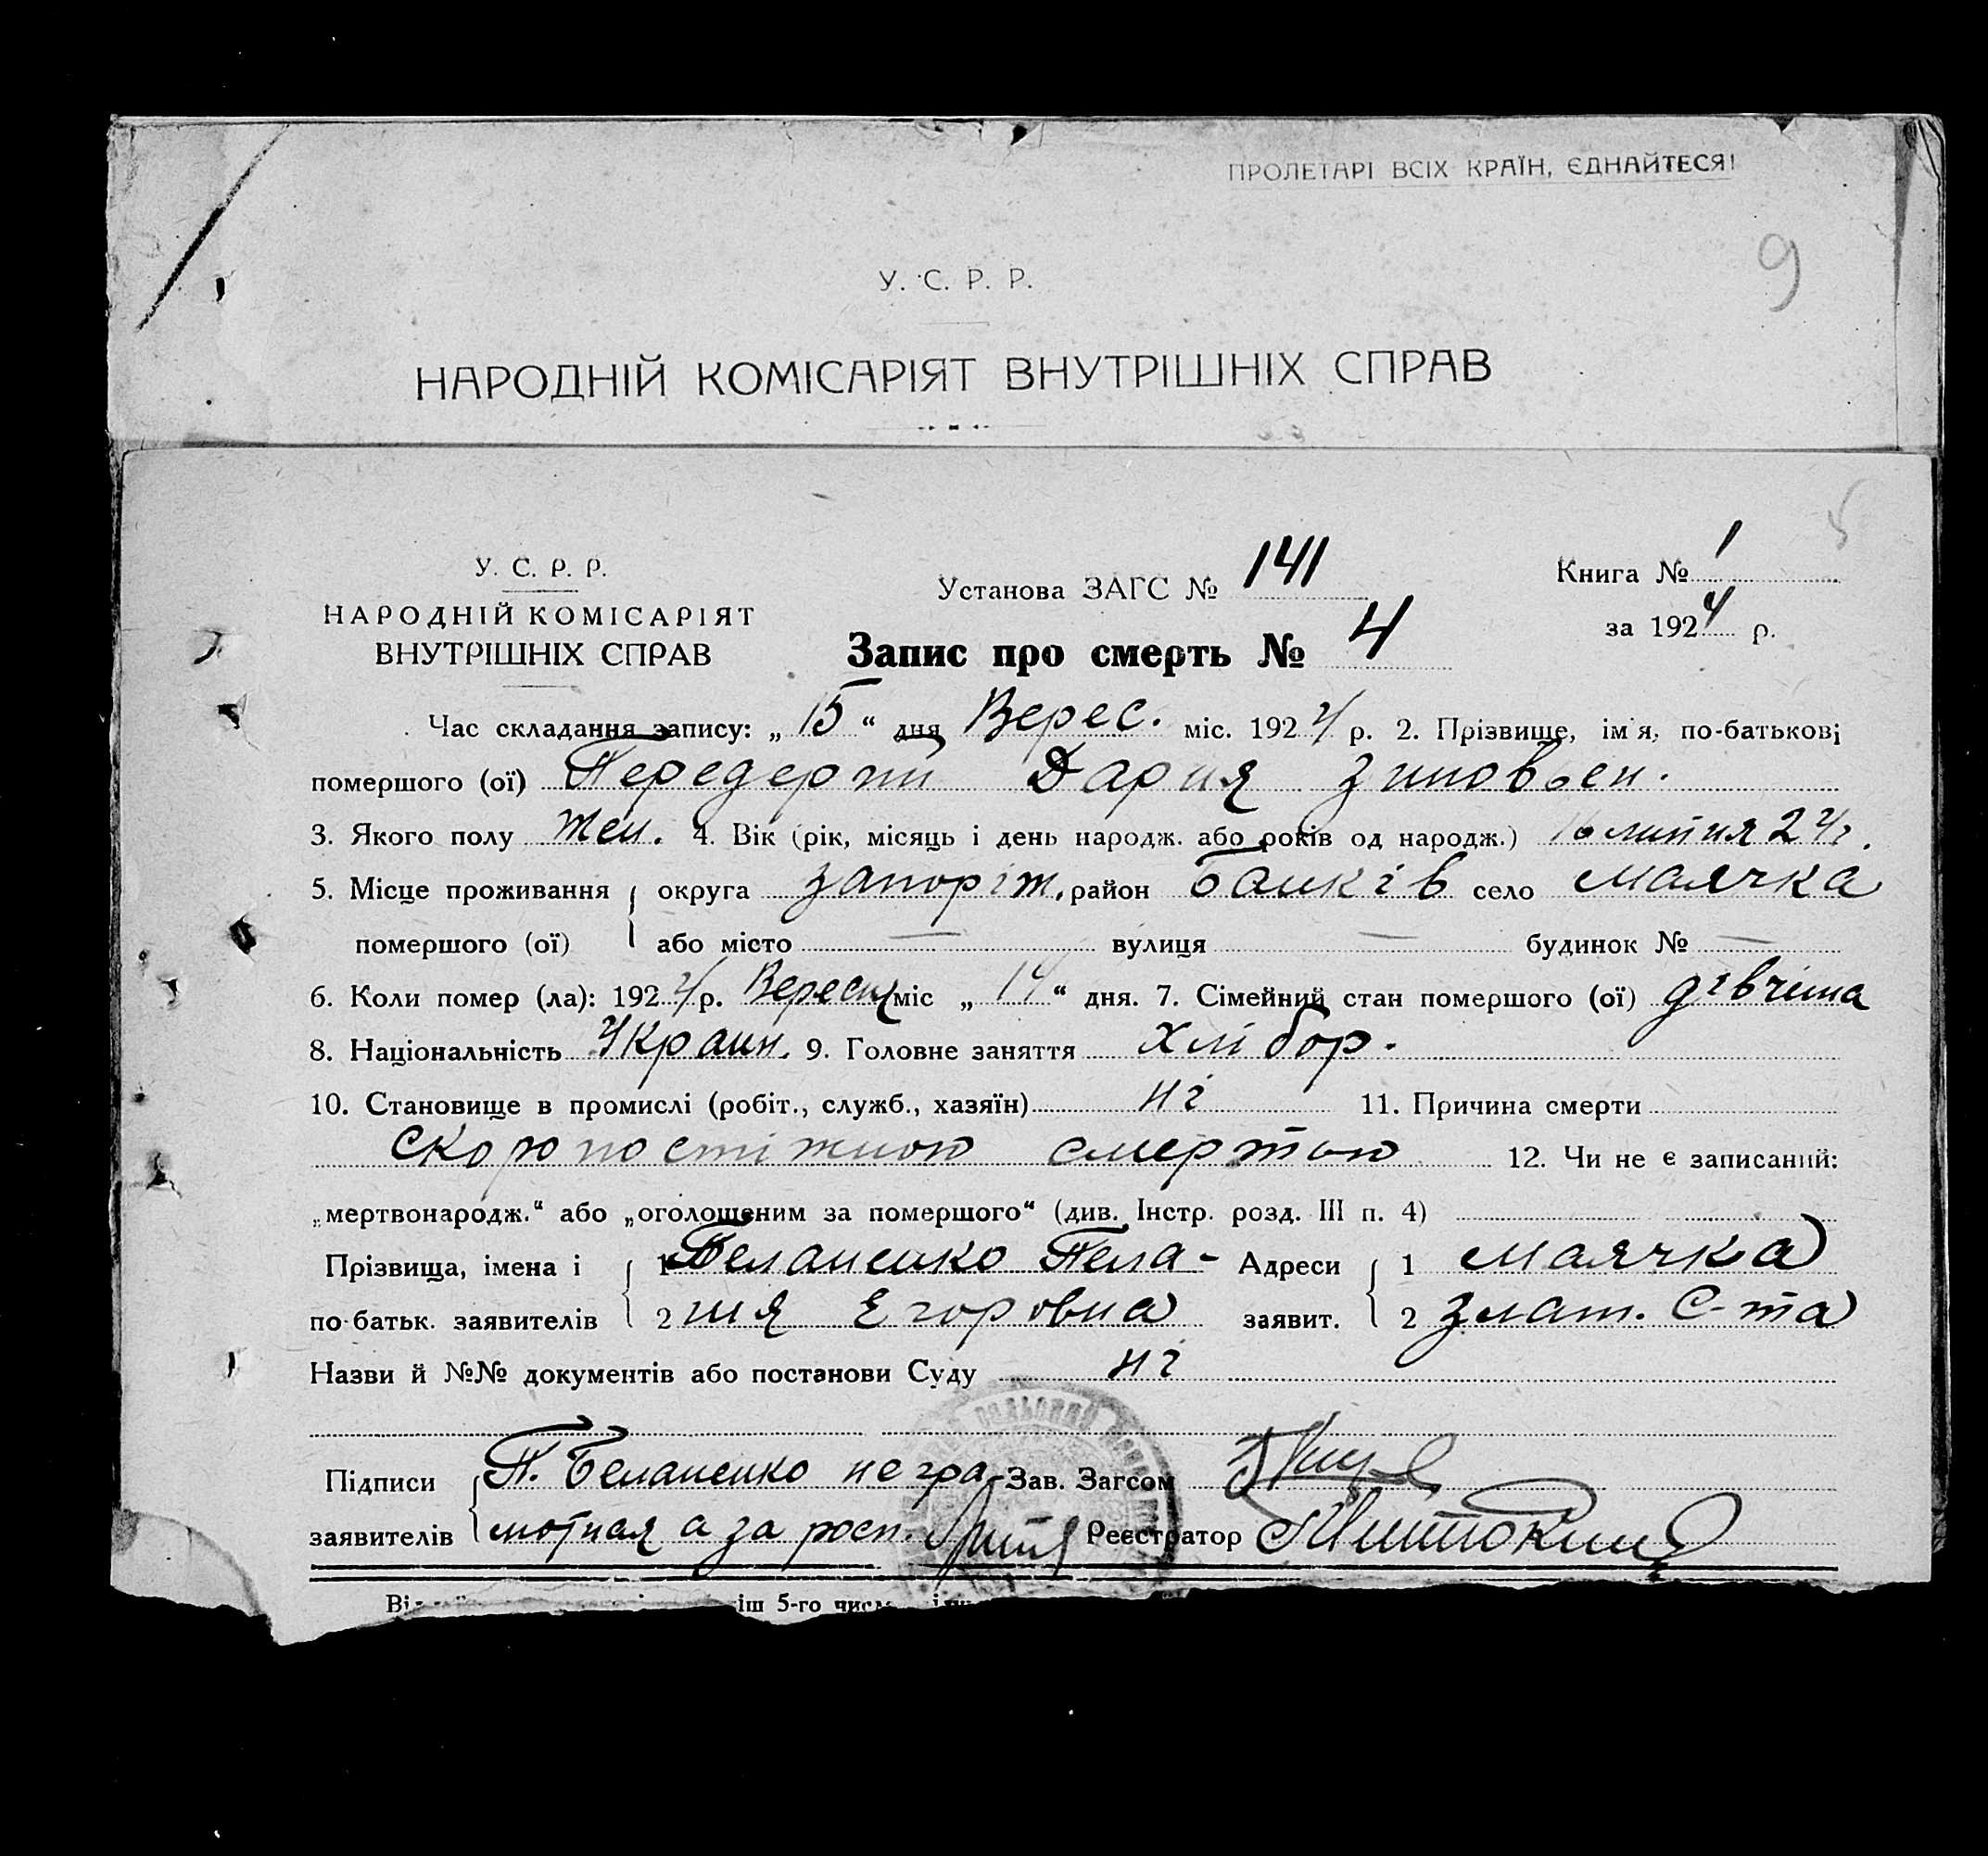 ПРОЛЕТАРІ ВСІХ КРАЇН, ЄДНАЙТЕСЯ!
9
У. С. Р. Р.
НАРОДНІЙ КОМІСАРІЯТ ВНУТРІШНІХ СПРАВ
У. С. Р. Р.
НАРОДНІЙ КОМІСАРІЯТ
ВНУТРІШНІХ СПРАВ
Установа ЗАГС № 141
Книга № 1
за 1924 р.
Запис про смерть № 4
Час складання запису: „ 15 “ дня Верес. міс. 1924 р. 2. Прізвище, ім'я, по-батькові
помершого (ої) Передерти Дария Зиновьен.
3. Якого полу жен. 4. Вік (рік, місяць і день народж. або років од народж.) 16 липня 24 г.
5. Місце проживання округа Запоріж. район Банків село Маячка
помершого (ої) або місто — вулиця — будинок № —
6. Коли помер (ла): 1924 р. Вересня міс „ 14 “ дня. 7. Сімейний стан помершого (ої) дівчина
8. Національність Украин. 9. Головне заняття Хлібор.
10. Становище в промислі (робіт., служб., хазяїн) ні 11. Причина смерти
скоропостіжною смертью 12. Чи не є записаний:
„мертвонародж.“ або „оголошеним за помершого“ (див. Інстр. розд. III п. 4)
Прізвища, імена і 1 Беланенко Пела- Адреси 1 Маячка
по-батьк. заявителів 2 шя Егоровна заявит. 2 Злат. С-та
Назви й №№ документів або постанови Суду ні
Підписи П. Беланенко негра- Зав. Загсом
заявителів мотная а за росп. Реєстратор
іш 5-го числ